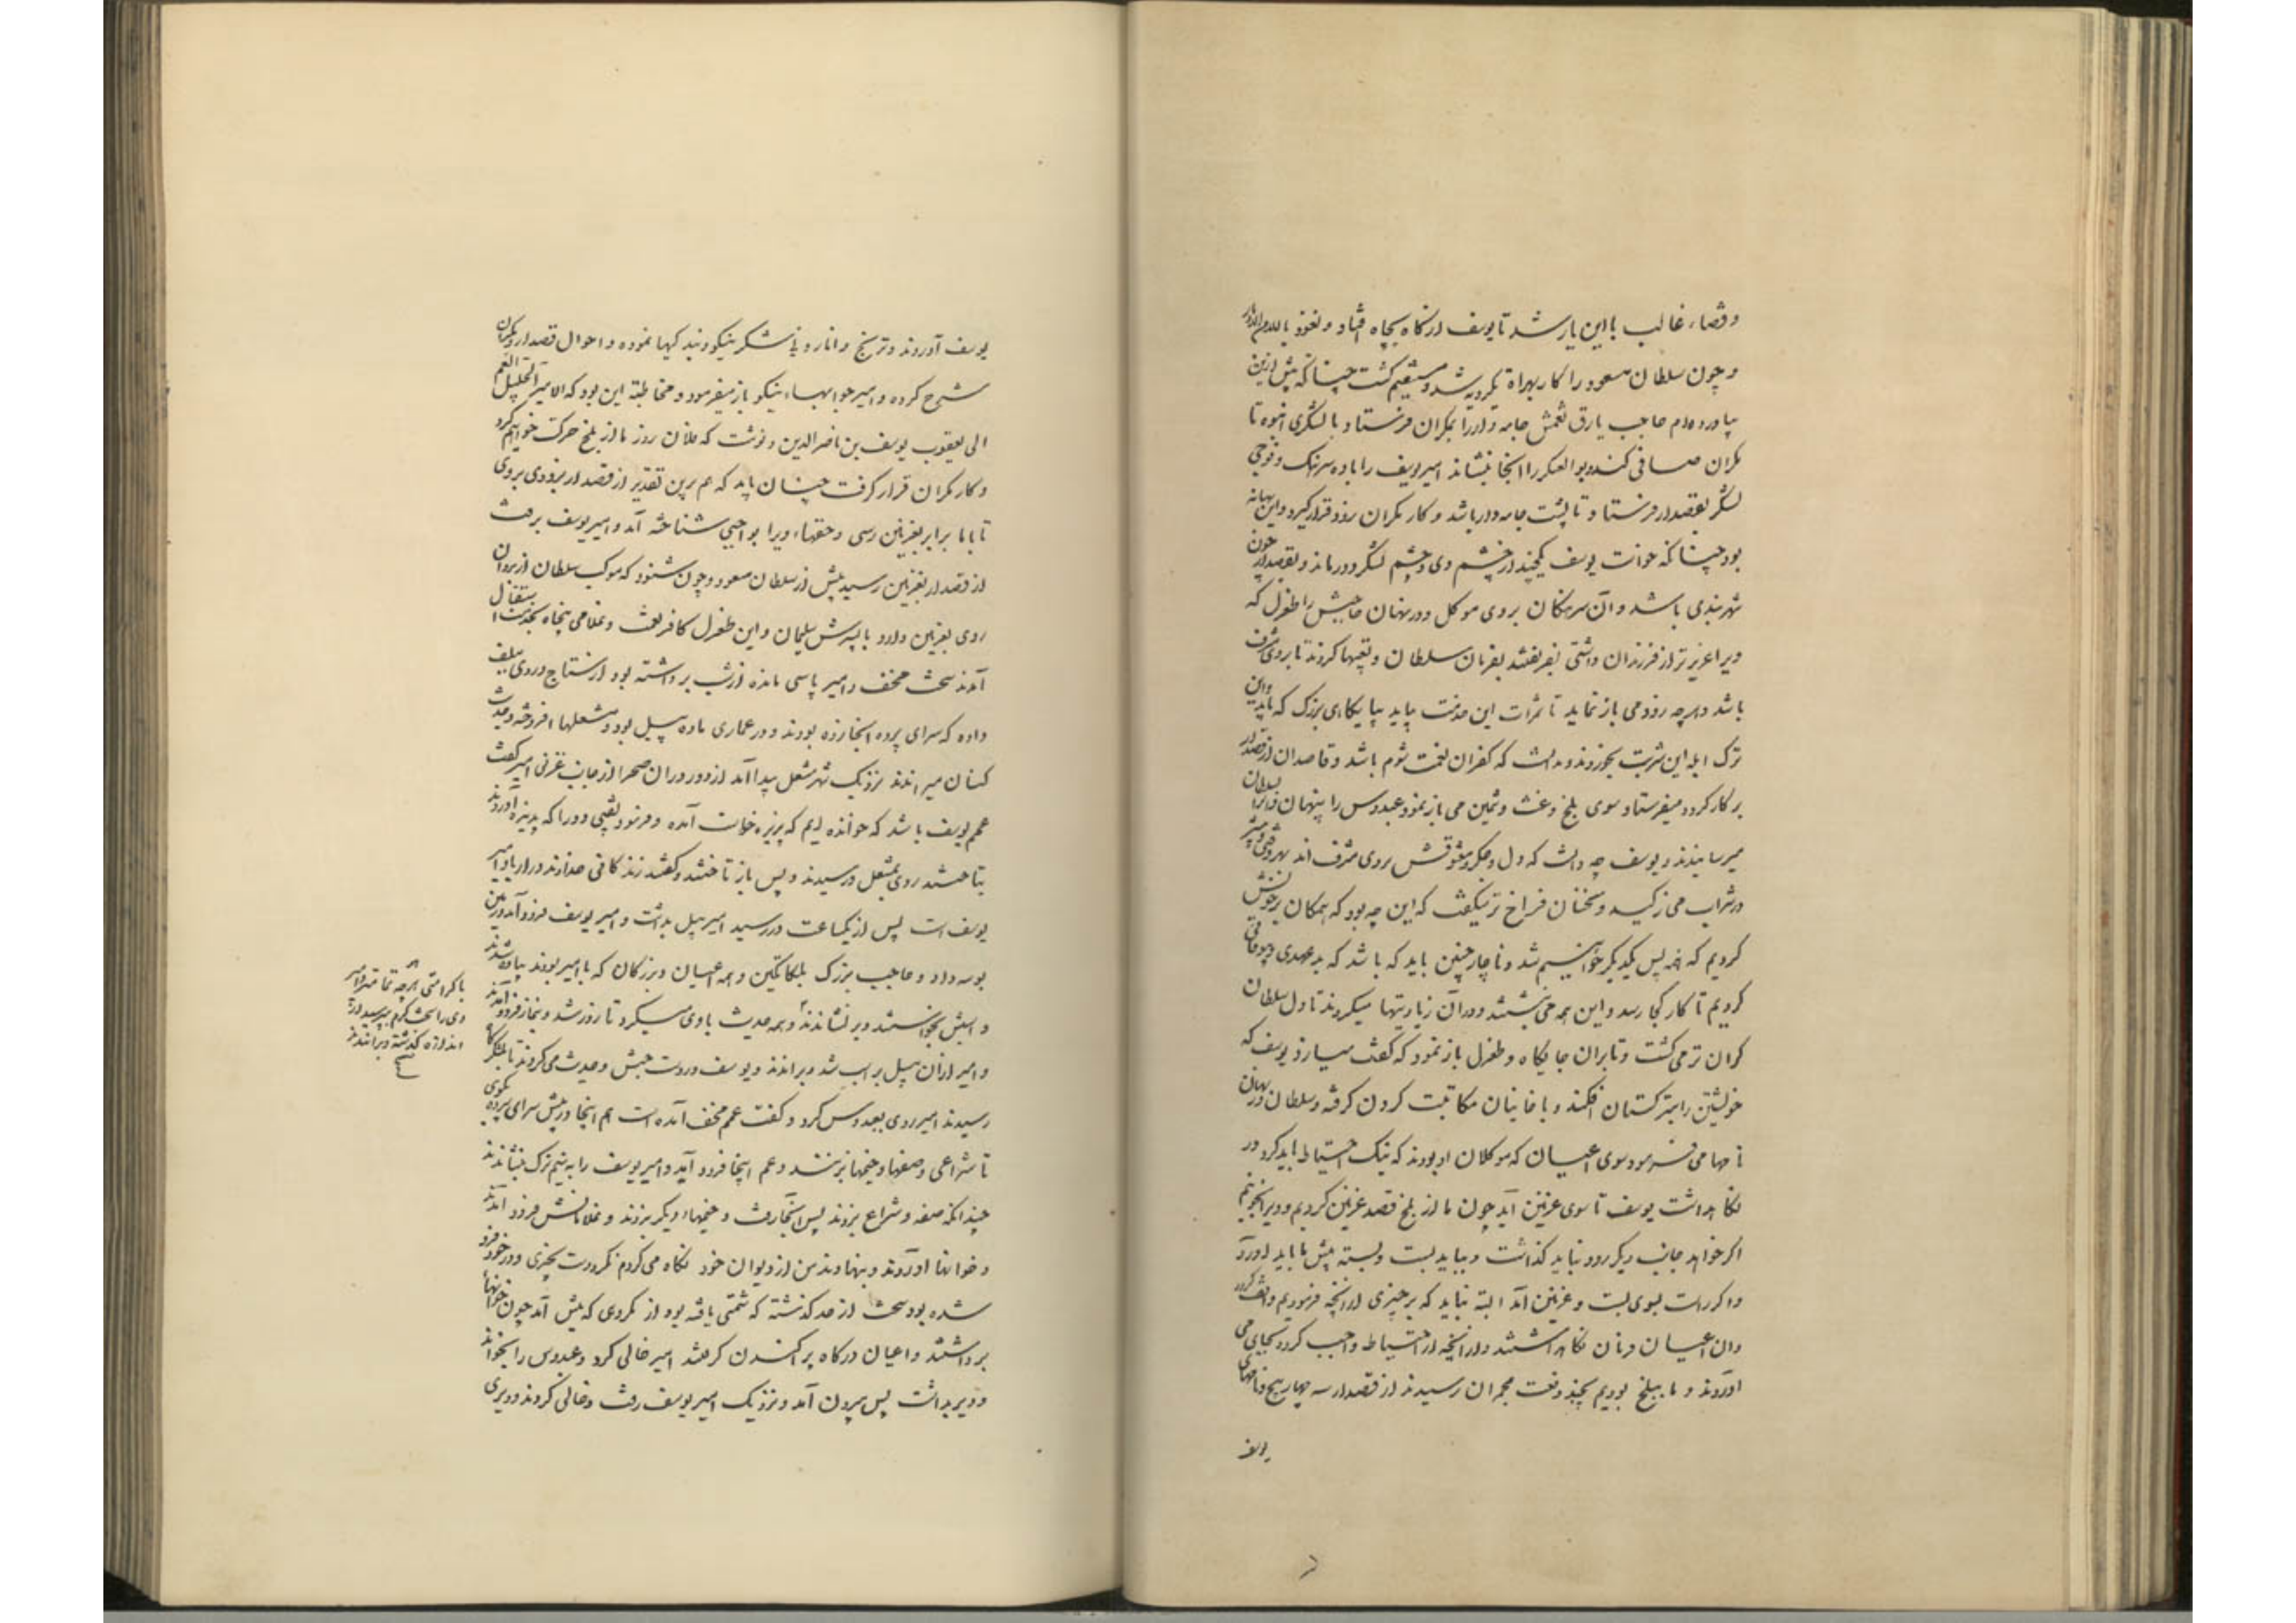 و قضاء غالب با این یار شد تا یوسف از گاه بچاه افتاد و نعوذ بالله من الادبار
و چون سلطان مسعود را کار بهراة یکرویه شد و مستقیم گشت چنانکه پیش ازین
بیاورده‌ام حاجب یارق تغمش جامه‌دار را بمکران فرستاد با لشکری انبوه تا
مکران صافی کند و بوالعسکر را آنجا بنشاند امیر یوسف را با ده سرهنگ و فوجی
لشکر بقصدار فرستاد تا پشت جامه‌دار باشد و کار مکران زود قرار گیرد و این بهانه
بود چنانکه خواست یوسف یکچند از چشم وی و چشم لشکر دور ماند و بقصدار چون
شهربندی باشد و آن سرهنگان بر وی موکل و در نهان حاجبش را طغرل که
ویرا عزیزتر از فرزندان داشتی بفریفتند بفرمان سلطان و تعبیها کردند تا بر وی مشرف
باشد و هرچه رود می باز نماید تا ثمرات این خدمت بیابد بپایگاهی بزرگ که یابد و این
ترک ابله این شربت بخورد و ندانست که کفران نعمت شوم باشد و قاصدان از قصدار
بر کار کرد و میفرستاد سوی بلخ و غث و ثمین می باز نمود عبدوس را پنهان و آنرا بسلطان
میرسانیدند و یوسف چه دانست که دل و جگر و معشوقش بر وی مشرف‌اند بهر وقتی و بیشتر
در شراب می ژکید و سخنان فراخ‌تر میگفت که این چه بود که همگان بر خویشتن
کردیم که همه پس یکدیگر خواهیم شد و ناچار چنین باید که باشد که بدعهدی و بیوفائی
کردیم تا کار کجا رسد و این همه می نبشتند و در آن زیادتیها میکردند تا دل سلطان
گران‌تر می گشت و تا بران جایگاه طغرل باز نمود که گفت میسازد یوسف که
خویشتن را بترکستان افکند و با خانیان مکاتبت کردن گرفته و سلطان در نهان
نامها می فرمود سوی اعیان که موکلان او بودند که نیک احتیاط باید کرد در
نگاهداشت یوسف تا سوی غزنین آید چون ما از بلخ قصد غزنین کردیم و ویرا بخوانیم
اگر خواهد جانب دیگر رود نباید گذاشت و بباید بست و بسته پیش ما باید آورد
و اگر راست بسوی بست و غزنین آمد البته نباید که بر چیزی از آنچه فرمودیم واقف گردد
و آن اعیان فرمان نگاه داشتند و از آنچه از احتیاط واجب کرد بجای می
آوردند و ما ببلخ بودیم بچند دفعت مجمزان رسیدند از قصدار سه چهار پنج و نامهای
یوسف
یوسف آوردند و ترنج و انار و نیشکر نیکو و بندگیها نموده و احوال قصدار و مکران
شرح کرده و امیر جوابهاء نیکو باز میفرمود و مخاطبه این بود که الامیر الجلیل العم
ابی یعقوب یوسف بن ناصرالدین و نوشت که فلان روز ما از بلخ حرکت خواهیم کرد
و کار مکران قرار گرفت چنان باید که هم برین تقدیر از قصدار بزودی بروی
تا با ما برابر بغزنین رسی و حقهاء ویرا بواجبی شناخته آید و امیر یوسف برفت
از قصدار بغزنین رسید پیش از سلطان مسعود و چون شنود که موکب سلطان از پروان
روی بغزنین دارد با پسرش سلیمان و این طغرل کافر نعمت و غلامی پنجاه بخدمت استقبال
آمدند سخت مخف و امیر پاسی مانده از شب برداشته بود از ستاج و روی ببلق
داده که سرای پرده آنجا زده بودند و در عماری ماده پیل بود و مشعلها افروخته و حدیث
کنان میراندند نزدیک شهر مشعل پیدا آمد از دور در آن صحرا از جانب غزنی امیر گفت
عمم یوسف باشد که خوانده‌ایم که پذیره خواست آمد و فرمود نقیبی دو را که پذیره آوردند
بتاختند روی بمشعل و رسیدند و پس باز تاختند و گفتند زندگانی خداوند دراز باد امیر
یوسف است پس از یکساعت در رسید امیر پیل بداشت و امیر یوسف فرود آمد و زمین
بوسه داد و حاجب بزرگ بلکاتگین و همه اعیان و بزرگان که با امیر بودند پیاده شدند
و اسپش بخواستند و برنشاندند و همه حدیث با وی میکرد تا روز شد و بنماز فرود آمدند
با کرامتی هرچه تمامتر و امیر
وی را سخت گرم بپرسید از
اندازه گذشته و براندند
و امیر از آن پیل بر اسب شد و براندند و یوسف در دست چپش و حدیث می‌کردند تا بلشکرگاه
رسیدند امیر روی بعبدوس کرد و گفت عمم مخف آمده است هم اینجا در پیش سرای پرده بگوی
تا شراعی و صفها و خیمها بزنند و عمم اینجا فرود آید و امیر یوسف را به نیم ترک بنشاندند
چندانکه صفه و شراع بزدند پس آنجا رفت و خیمهاء دیگر بزدند و غلامانش فرود آمدند
و خوانها آوردند و بنهادند من از دیوان خود نگاه می‌کردم نکرد دست بچیزی و در خود فرو
شده بود سخت از حد گذشته که شمتی یافته بود از مکروهی که پیش آمد چون خوانها
برداشتند و اعیان درگاه پراکندن گرفتند امیر خالی کرد و عبدوس را بخواند
و دیر بداشت پس بیرون آمد و نزدیک امیر یوسف رفت و خالی کردند و دیری